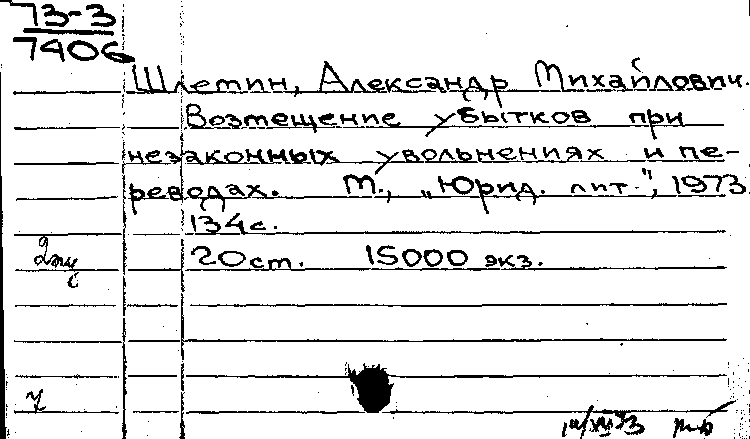 73-3
7406
Шлемин, Александр Михайлович.
Возмещение убытков при
незаконных увольнениях и пе-
реводах. М., „Юрид. лит.", 1973
134 с.
20 см. 15000 экз.